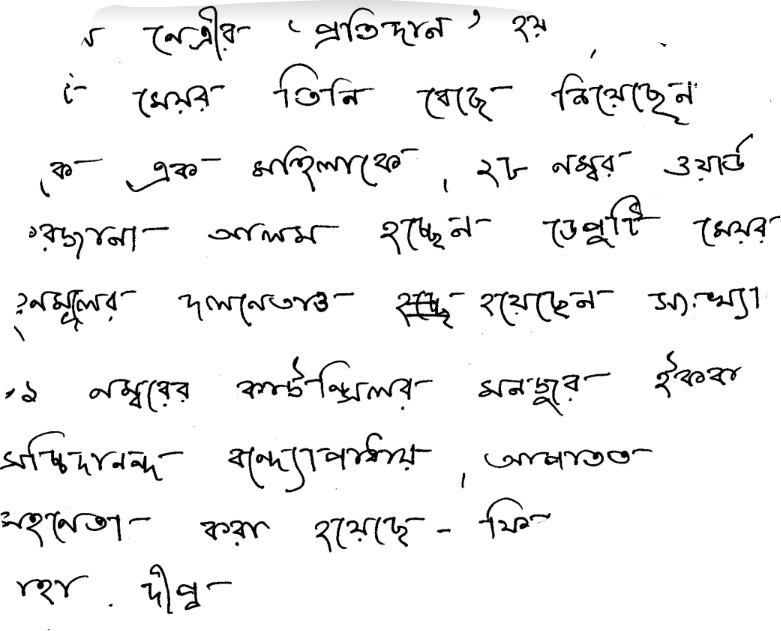 নেত্রীর ‘প্রতিদান’ হয়
মেয়র তিনি বেছে নিয়েছেন
ক এক মহিলাকে, ২৮ নম্বর ওয়ার্ড
রজানা আলম হচ্ছেন ডেপুটি মেয়র
নমূলের দলনেতাও হয়েছেন সংখ্যা
১ নম্বরের কাউন্সিলর মনজুর ইকবা
সচ্চিদানন্দ বন্দ্যোপাধ্যায়, আপাতত
সহনেতা করা হয়েছে - ফি
হা. দীপু